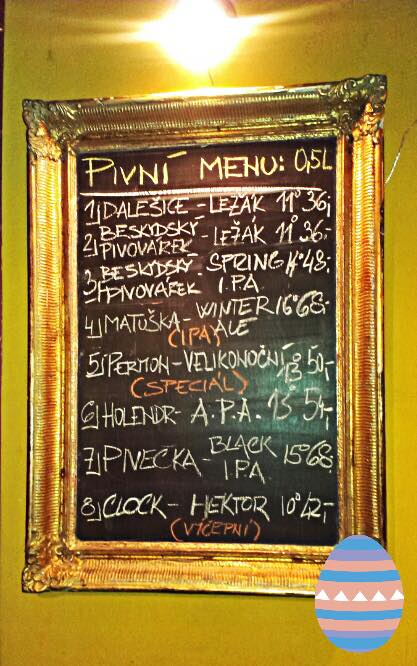 PIVNÍ MENU: 0,5L
1) DALEŠICE - LEŽÁK 11° 36,-
2) BESKYDSKÝ PIVOVÁREK - LEŽÁK 11° 36,-
3) BESKYDSKÝ PIVOVÁREK - SPRING I.P.A. 14° 48,-
4) MATUŠKA - WINTER ALE 16° 68,-
(IPA)
5) PERMON - VELIKONOČNÍ 13° 50,-
(SPECIÁL)
6) HOLENDR - A.P.A. 13° 54,-
7) PIVEČKA - BLACK IPA 15° 68,-
8) CLOCK - HEKTOR 10° 42,-
(VÝČEPNÍ)